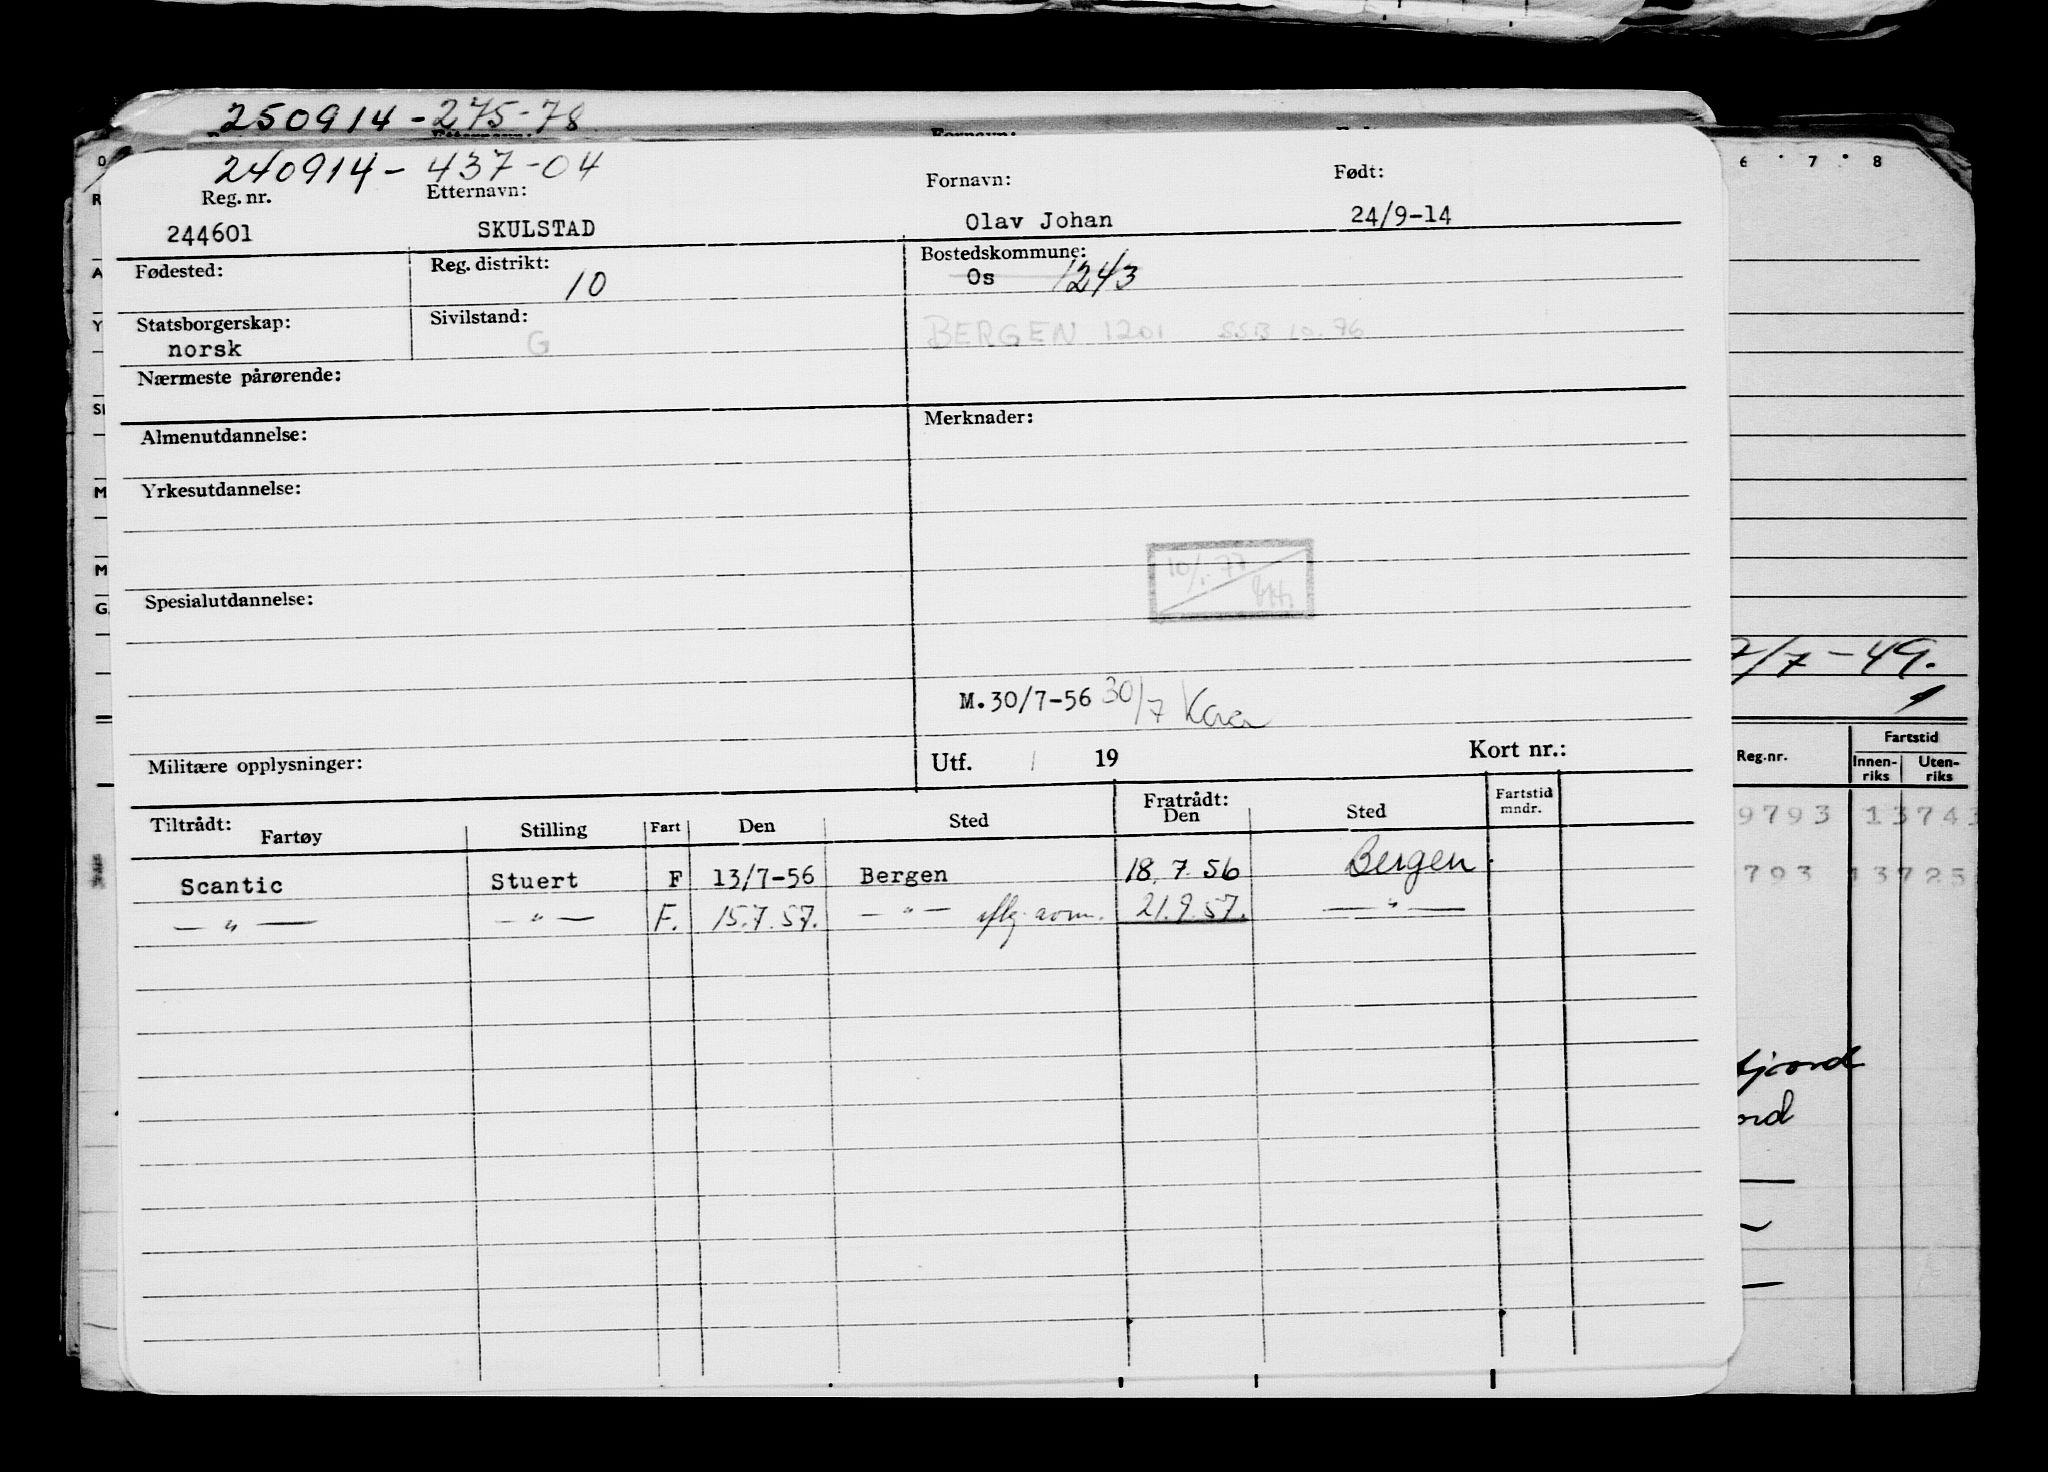 250914-275-78
240914-437-04
Reg. nr. Etternavn: Fornavn: Født:
244601 SKULSTAD Olav Johan 24/9-14
Fødested: Reg. distrikt: 10 Bostedskommune: Os 1243
Statsborgerskap: norsk Sivilstand: G BERGEN 1201 SSB 10.76
Nærmeste pårørende:
Almenutdannelse: Merknader:
Yrkesutdannelse:
10/1-77
Spesialutdannelse:
M.30/7-56 30/7
Militære opplysninger: Utf. / 19 Kort nr.:
Tiltrådt: Fratrådt:
Fartøy Stilling Fart Den Sted Den Sted Fartstid mndr.
Scantic Stuert F 13/7-56 Bergen 18.7.56 Bergen
— " — — " — F. 15.7.57. — " — 21.9.57. — " —
6 7 8
7/7-49.
Reg.nr. Fartstid
Innen-riks Uten-riks
9793 1374
793 13725
fjord
ord